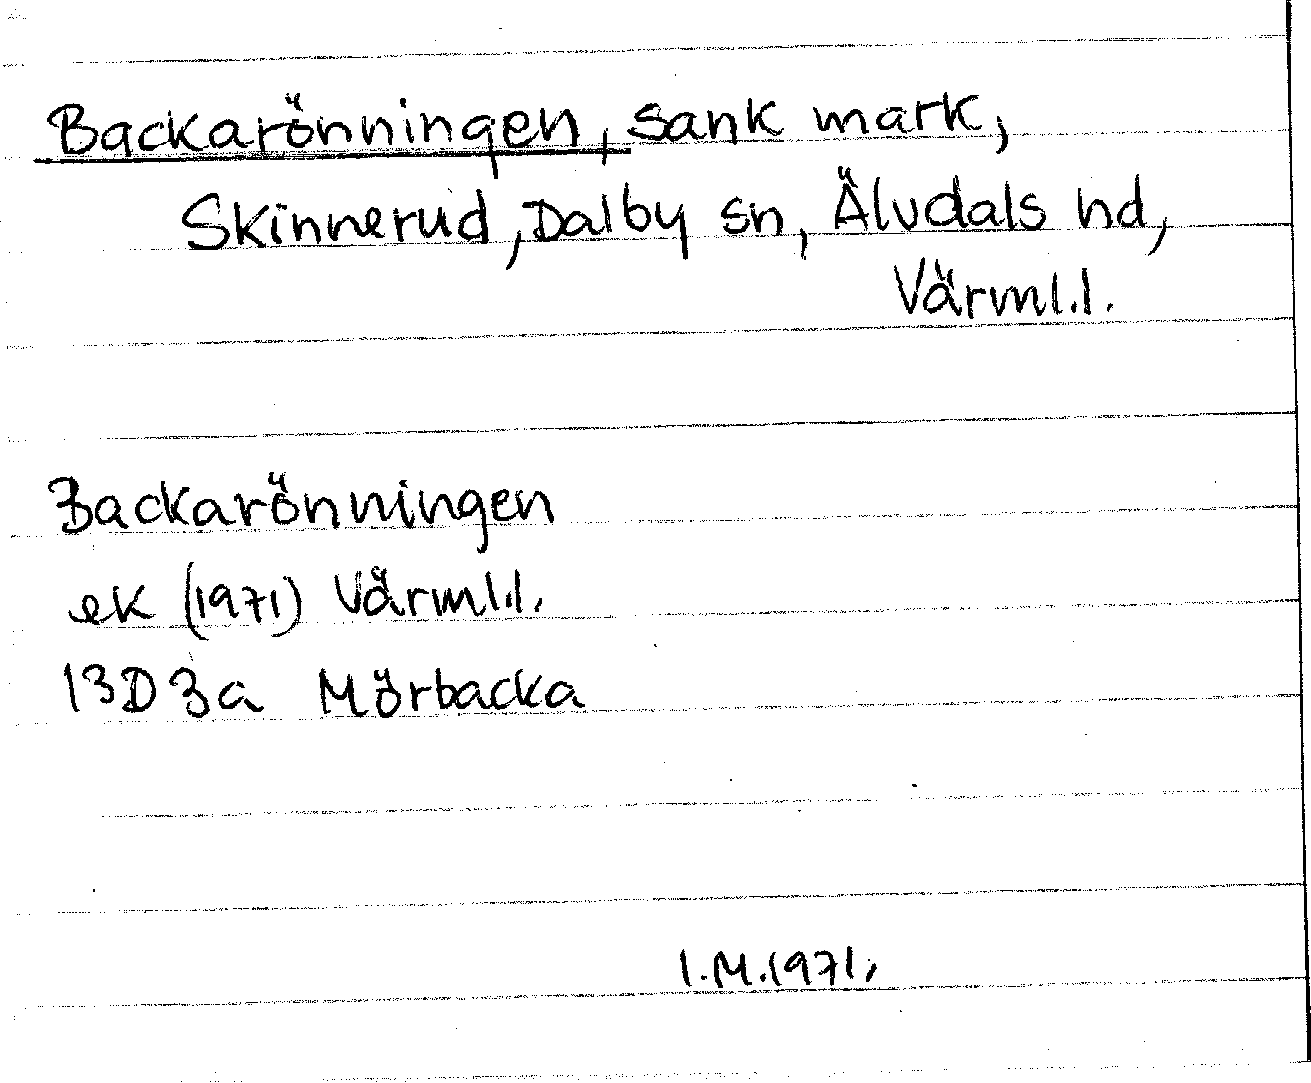 Backarönningen, sank mark,
Skinnerud, Dalby sn, Älvdals hd,
Värml.l.
Backarönningen
ek (1971) Värml.l.
13D 3a Mörbacka
I.M.1971.